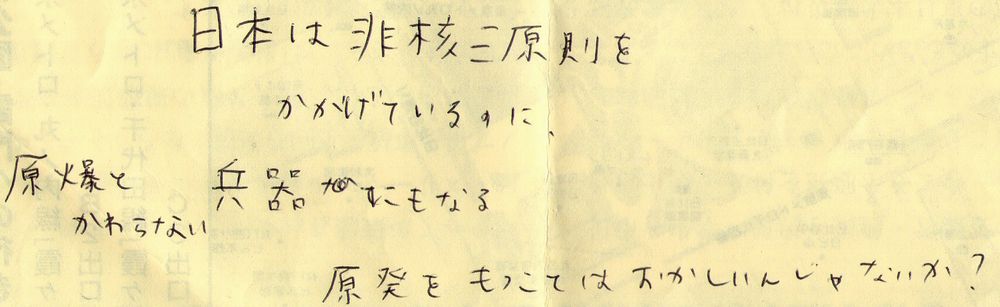 日本は非核三原則を
かかげているのに、
原爆と
かわらない
兵器にもなる
原発をもつことはおかしいんじゃないか?